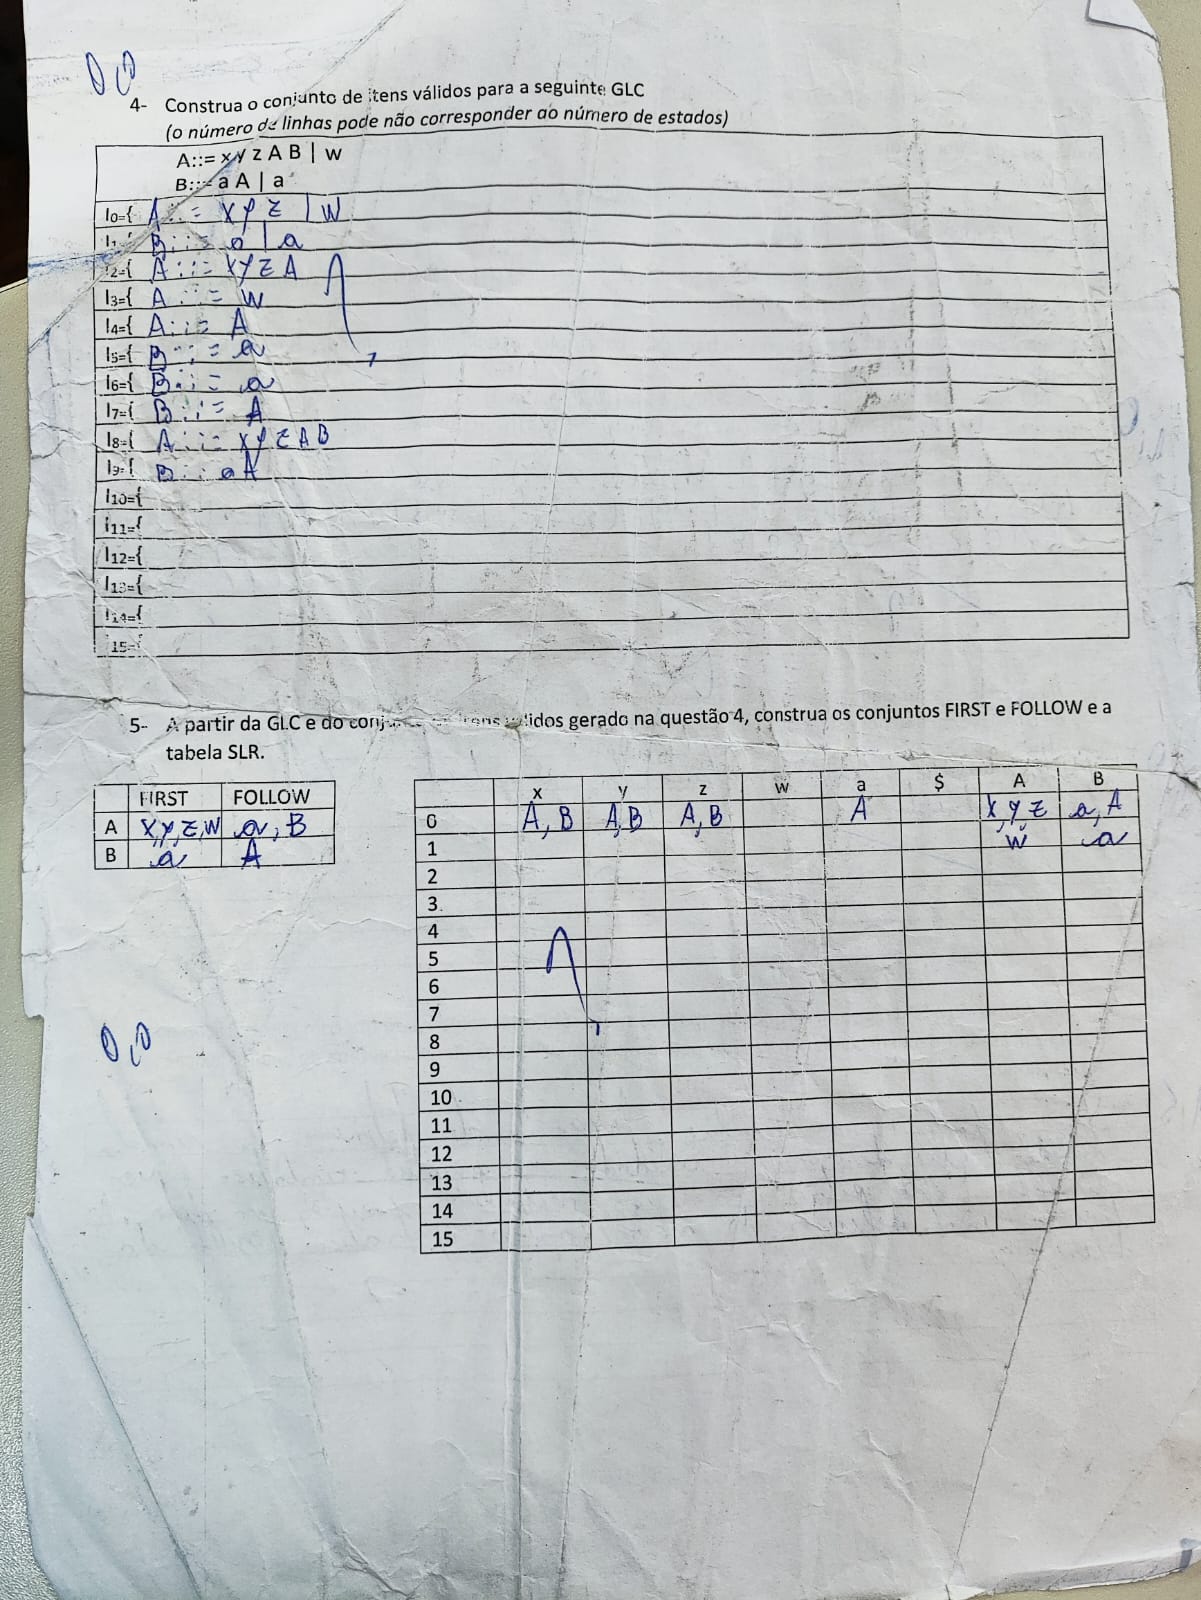 0,0
4- Construa o conjunto de itens válidos para a seguinte GLC
(o número de linhas pode não corresponder ao número de estados)
A::= x y z A B | w
B::= a A | a
I0={ A::= X Y Z | W
I1={ B::= a | a
I2={ A::= X Y Z A
I3={ A::= W
I4={ A::= A
I5={ B::= a
I6={ B::= a
I7={ B::= A
I8={ A::= X Y Z A B
I9={ B:: a A
I10={
I11={
I12={
I13={
I14={
I15={
5- A partir da GLC e do válidos gerado na questão 4, construa os conjuntos FIRST e FOLLOW e a
tabela SLR.
FIRST FOLLOW
A X,Y,Z,W a, B
B a A
x y z w a $ A B
0 A, B A,B A, B A X, Y, Z a, A
1 W a
2
3
4
5
6
7
8
9
10
11
12
13
14
15
0,0